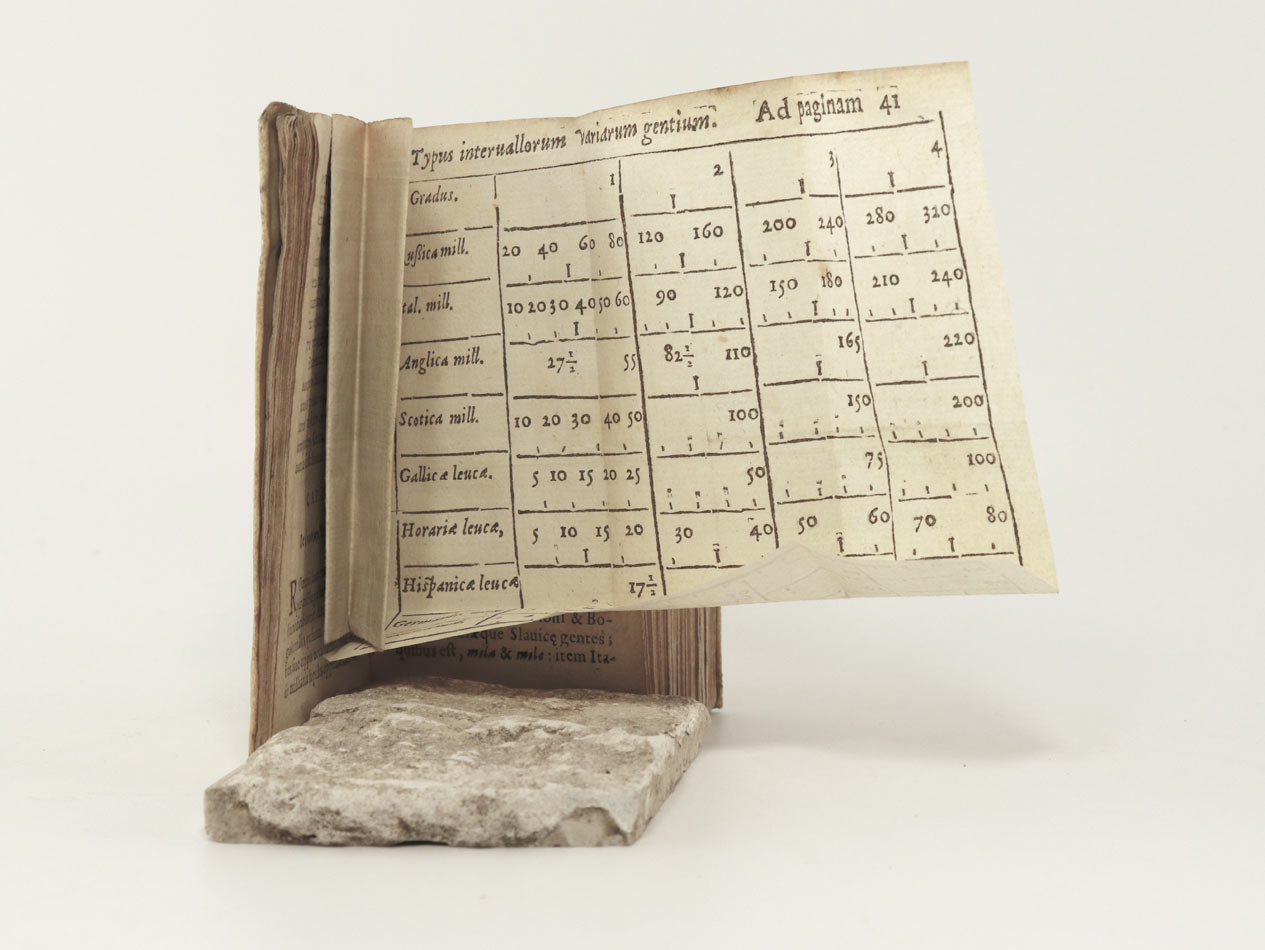 Typus interuallorum variarum gentium. Ad paginam 41
Gradus. 1 2 3 4
ußica mill. 20 40 60 80 120 160 200 240 280 320
tal. mill. 10 20 30 40 50 60 90 120 150 180 210 240
Anglica mill. 27½ 55 82½ 110 165 220
Scotica mill. 10 20 30 40 50 100 150 200
Gallicæ leucæ. 5 10 15 20 25 50 75 100
Horariæ leucæ, 5 10 15 20 30 40 50 60 70 80
Hispanicæ leucæ 17½
& Bo-
que Slauicę gentes;
quibus est, mila & mile: item Ita-